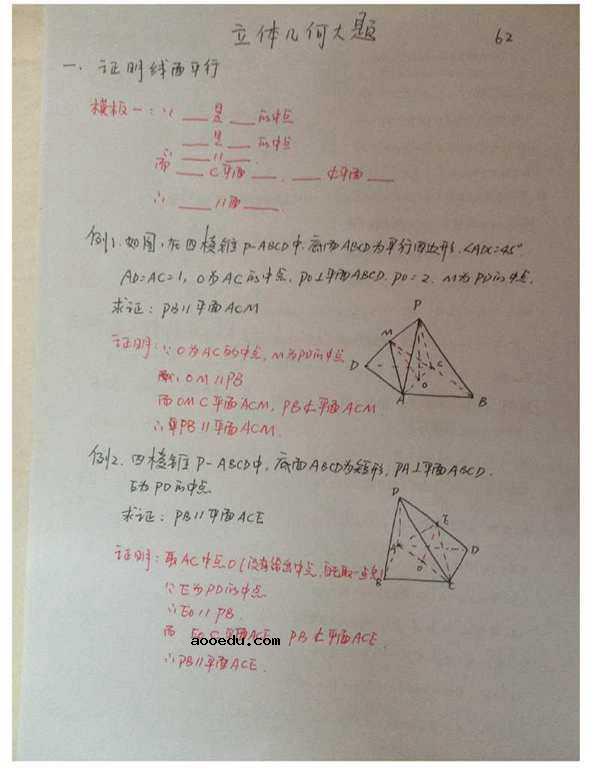 立体几何大题 62
一、证明线面平行
模板一：∵ ___ 是 ___ 的中点
___ 是 ___ 的中点
∴ ___ // ___ .
而 ___ ⊂平面 ___ . ___ ⊄平面 ___
∴ ___ //面 ___ .
例1. 如图，在四棱锥P-ABCD中. 底面ABCD为平行四边形. ∠ADC=45°
AD=AC=1, O为AC的中点, PO⊥平面ABCD. PO=2. M为PD的中点.
求证：PB//平面ACM
P
M
D
C
O
A
B
证明：∵O为AC的中点, M为PD的中点
∴OM//PB
而OM⊂平面ACM, PB⊄平面ACM
∴PB//平面ACM.
例2. 四棱锥P-ABCD中, 底面ABCD为矩形, PA⊥平面ABCD.
E为PD的中点
求证：PB//平面ACE
P
E
A
D
O
B
C
证明：取AC中点O(没有给出中点, 自己取一点
∵E为PD的中点
∴EO//PB.
而 EO⊂平面ACE PB⊄平面ACE
aooedu.com
∴PB//平面ACE.